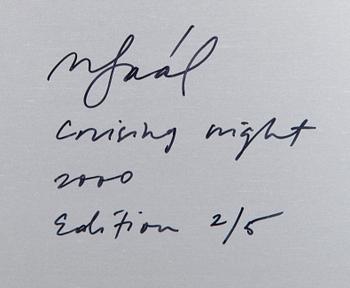 M Gaál
Cruising night
2000
Edition 2/5